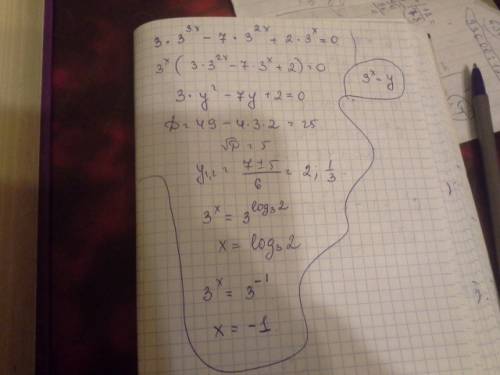 3 · 3^{3x} - 7 · 3^{2x} + 2 · 3^x = 0
3^x (3 · 3^{2x} - 7 · 3^x + 2) = 0
3^x = y
3 · y² - 7y + 2 = 0
D = 49 - 4 · 3 · 2 = 25
√D = 5
y_{1,2} = \frac{7 ± 5}{6} = 2; \frac{1}{3}
3^x = 3^{log_3 2}
x = log_3 2
3^x = 3^{-1}
x = -1